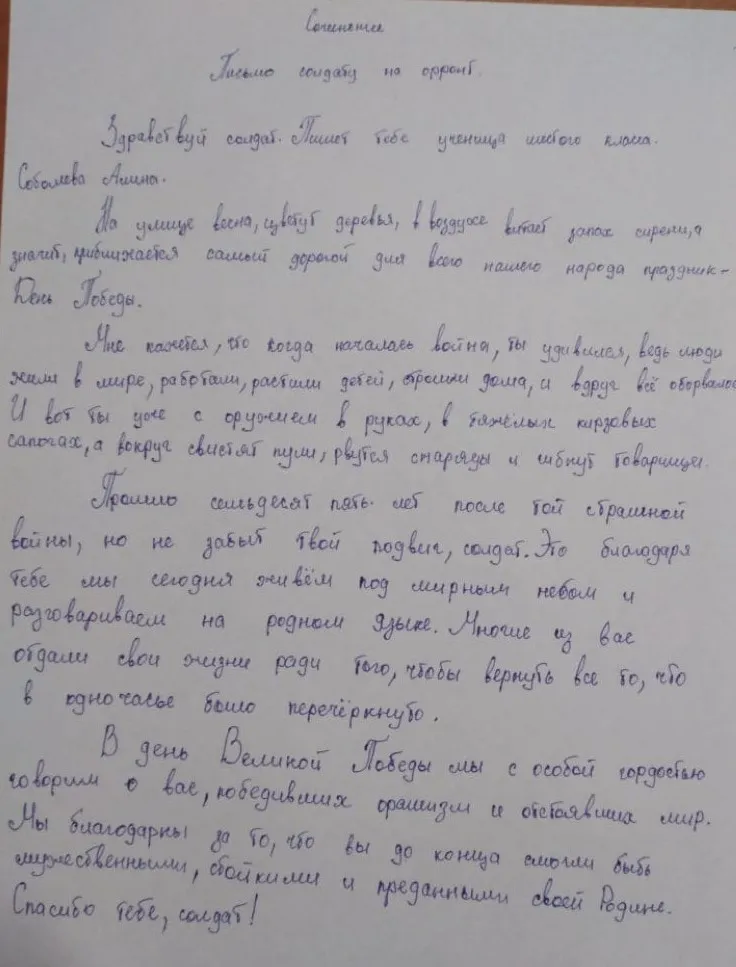 Сочинение
Письмо солдату на фронт.
Здравствуй солдат. Пишет тебе ученица шестого класса.
Соболева Алина.
На улице весна, цветут деревья, в воздухе витает запах сирени, а
значит, приближается самый дорогой для всего нашего народа праздник -
День Победы.
Мне кажется, что когда началась война, ты удивился, ведь люди
жили в мире, работали, растили детей, строили дома, и вдруг всё оборвалос
И вот ты уже с оружием в руках, в тяжёлых кирзовых
сапогах, а вокруг свистят пули, рвутся снаряды и гибнут товарищи.
Прошло семьдесят пять лет после той страшной
войны, но не забыт твой подвиг, солдат. Это благодаря
тебе мы сегодня живём под мирным небом и
разговариваем на родном языке. Многие из вас
отдали свои жизни ради того, чтобы вернуть все то, что
в одночасье было перечёркнуто.
В день Великой Победы мы с особой гордостью
говорим о вас, победивших фашизм и отстоявших мир.
Мы благодарны за то, что вы до конца смогли быть
мужественными, стойкими и преданными своей Родине.
Спасибо тебе, солдат!